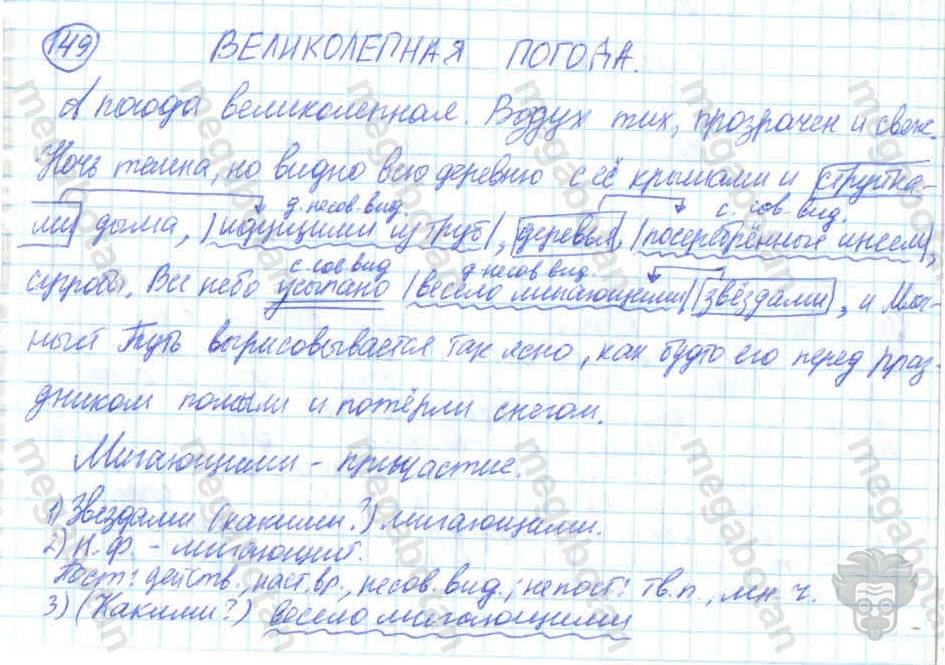 149 ВЕЛИКОЛЕПНАЯ ПОГОДА.
А погода великолепная. Воздух тих, прозрачен и свеж.
Ночь темна, но видно всю деревню с её крышами и струйка-
д. несов. вид. с. сов. вид.
ми дыма, |идущими из труб|, деревья, |посеребрённые инеем|,
с. сов вид д. несов. вид.
сугробы. Все небо усыпано |весело мигающими| звёздами, и Млеч-
ный Путь вырисовывается так ясно, как будто его перед праз-
дником помыли и потёрли снегом.
Мигающими - причастие.
1) Звездами (какими?) мигающими.
2) Н.ф. - мигающий.
Пост: действ, наст. вр., несов. вид.; непост: тв.п, мн. ч.
3) (Какими?) весело мигающими
megabotan